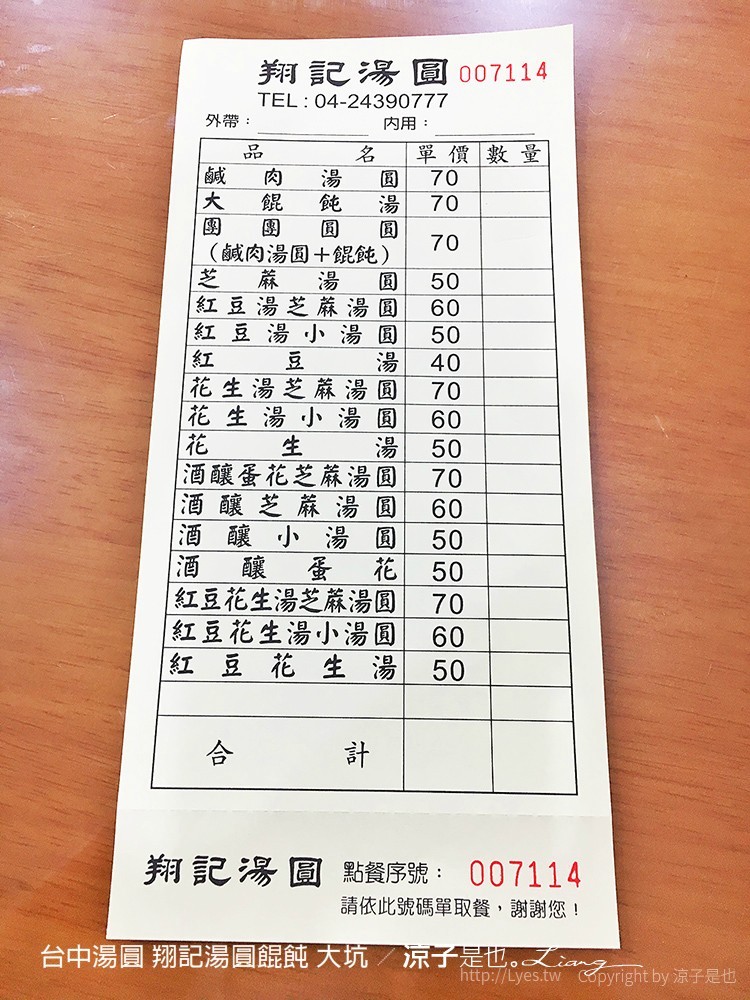 翔記湯圓 007114
TEL : 04-24390777
外帶： 内用：
品名 單價 數量
鹹肉湯圓 70
大餛飩湯 70
團團圓圓
（鹹肉湯圓＋餛飩） 70
芝蔴湯圓 50
紅豆湯芝蔴湯圓 60
紅豆湯小湯圓 50
紅豆湯 40
花生湯芝蔴湯圓 70
花生湯小湯圓 60
花生湯 50
酒釀蛋花芝蔴湯圓 70
酒釀芝蔴湯圓 60
酒釀小湯圓 50
酒釀蛋花 50
紅豆花生湯芝蔴湯圓 70
紅豆花生湯小湯圓 60
紅豆花生湯 50
合計
翔記湯圓 點餐序號： 007114
請依此號碼單取餐，謝謝您！
台中湯圓 翔記湯圓餛飩 大坑 ／涼子是也。Liang
http://Lyes.tw Copyright by 涼子是也